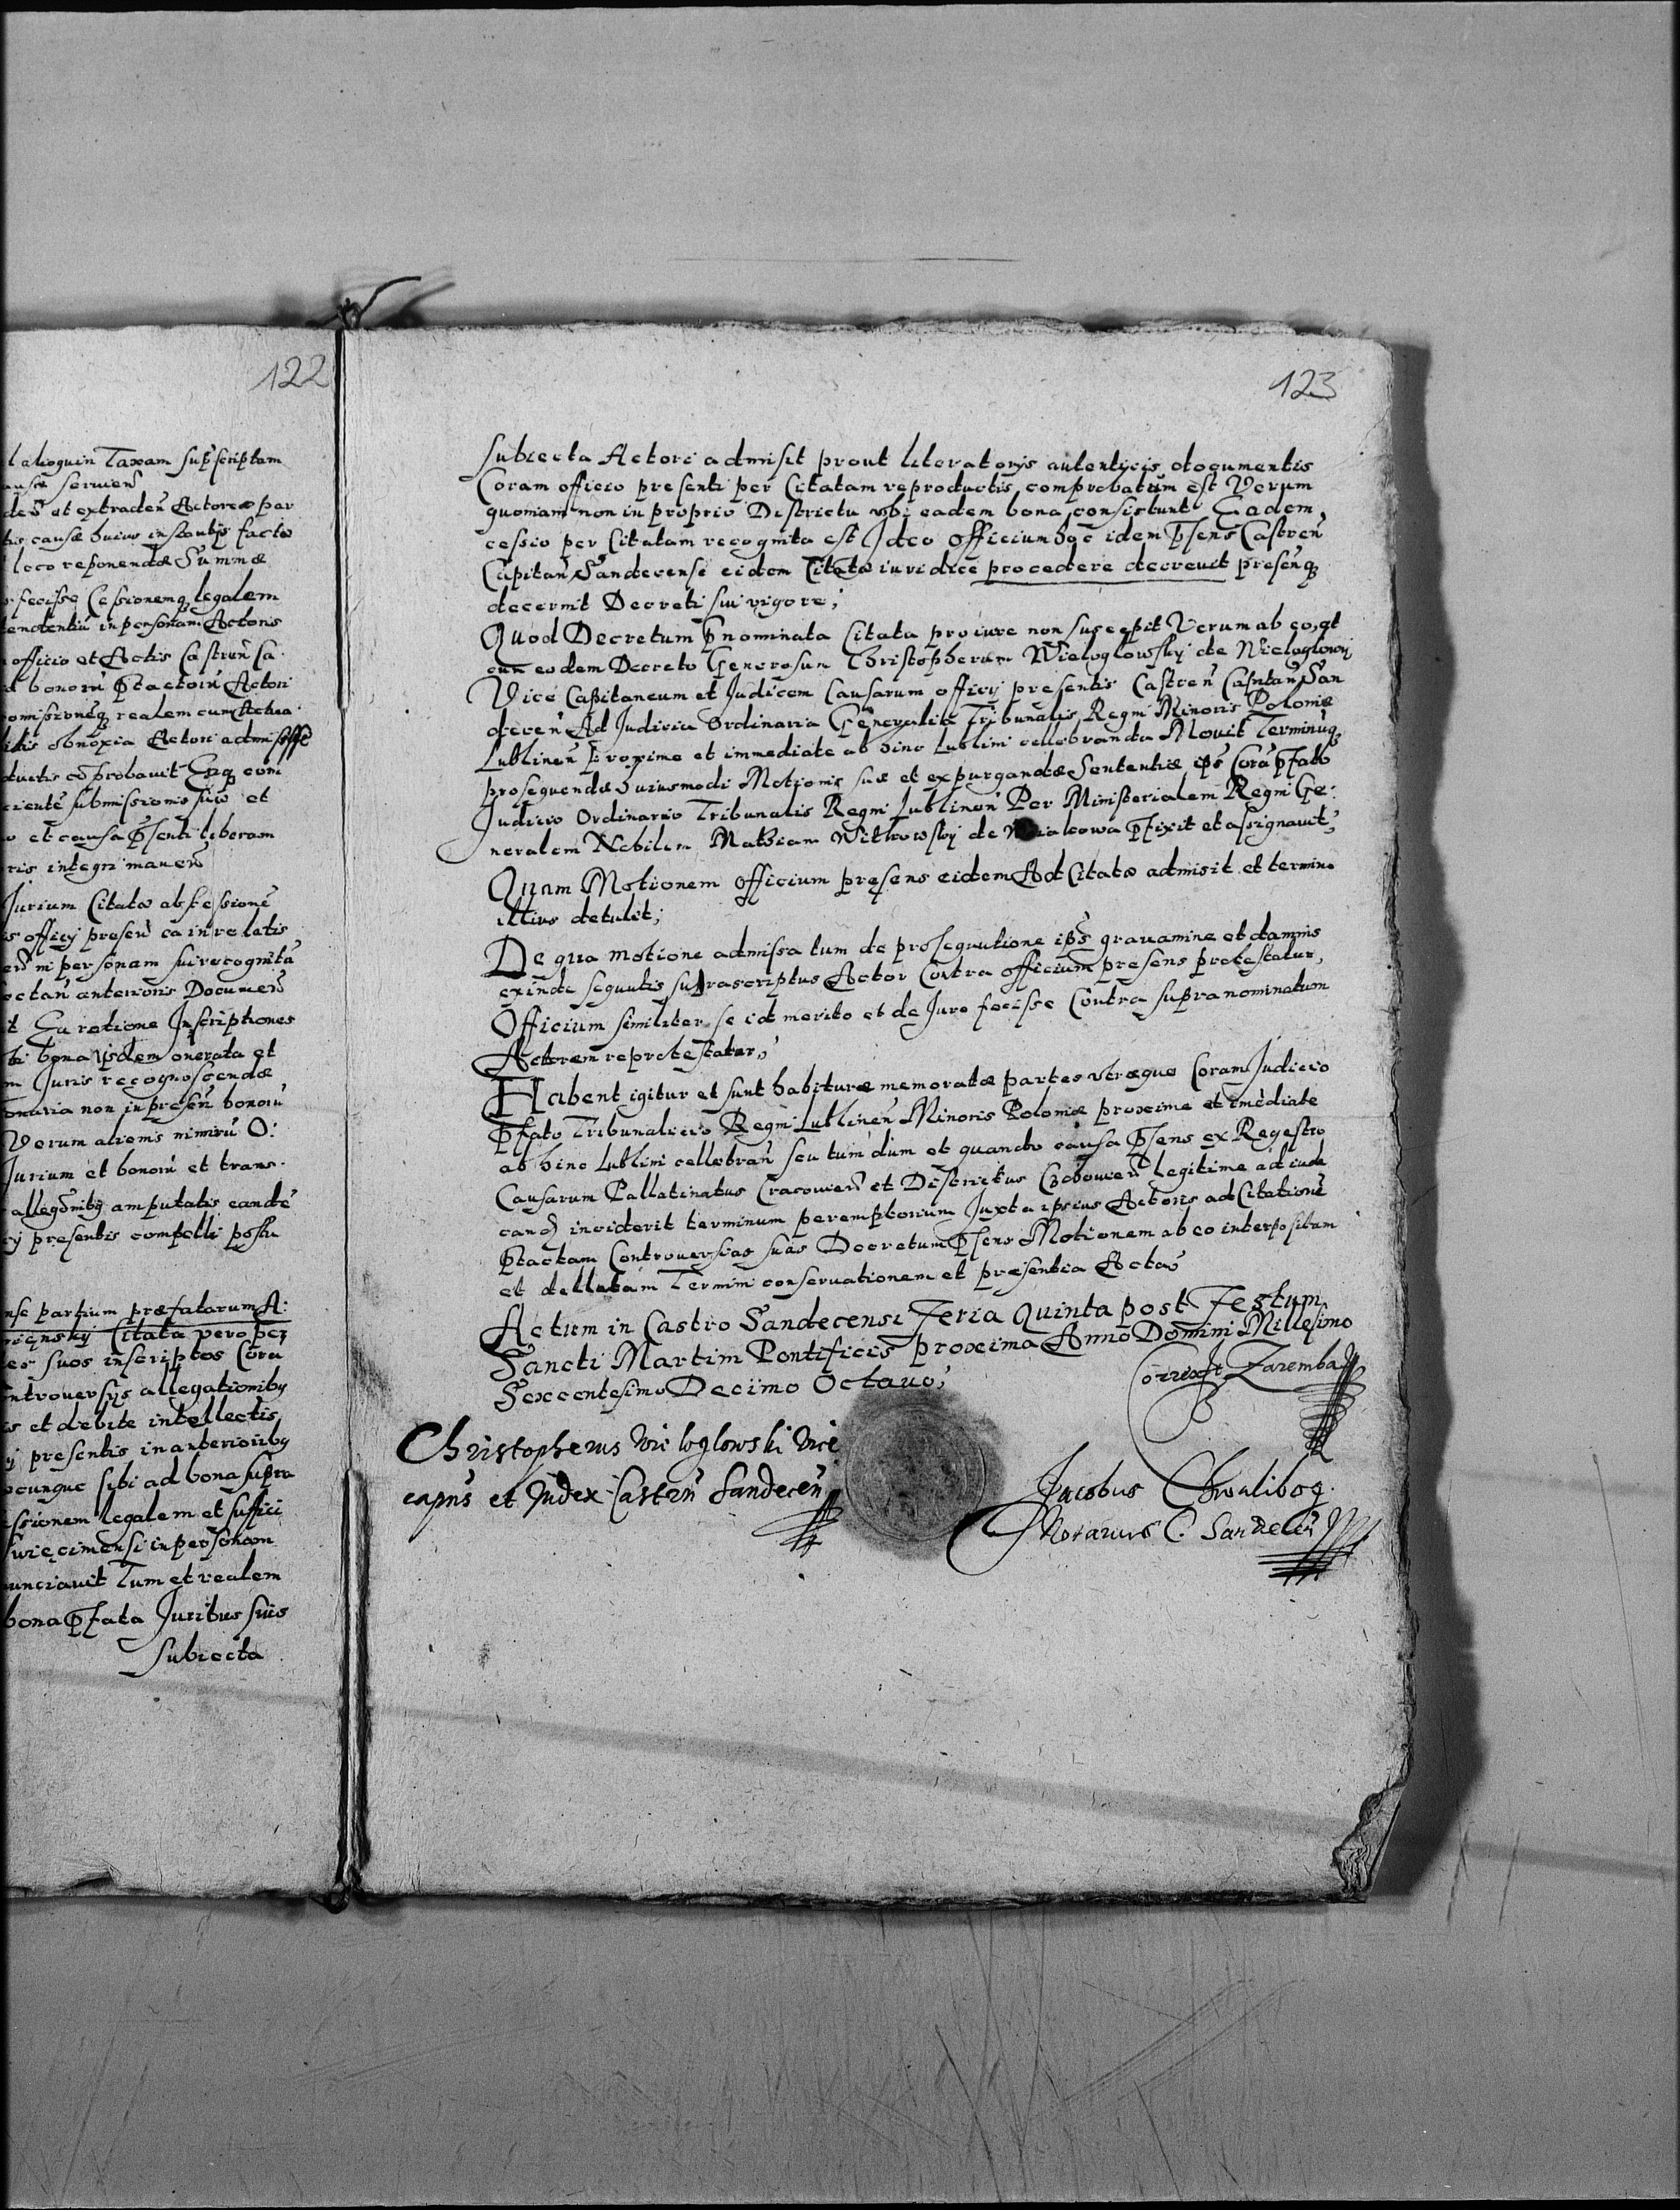 122
l alioquin Taxam supscriptam
ausæ seruien
den et extraden Actoreæ par
tis causæ huius instantijs facto
loco reponendæ Summæ
fecisse Cessionemq legalem
tendentiũ in personam Actoris
officio et Actis Castren Ca
d bonorũ Ptactorũ Actori
omissionẽq realem cum Actua
litis obnoxia Actori admisisse
ductis cõprobauit Eaq cum
ciente submissionis suæ et
o et causa Psenti liberam
ris integri manen
Jurium Citatæ ab Cessione
is officij presen ca in relatis
en in personam sui recognita
octan anterioris Documen
t Ea ratione Inscriptiones
bi bona ijsdem onerata et
m Juris recognoscendæ
onaria non in presen bonorũ
Verum alienis nimirũ O:
Jurium et bonorũ et trans.
allegõnibq amputatis eandẽ
ij presentis compelli postu
nse partium præfatarum A:
Citata vero per
es suos inscriptos Corã
ntrouersys allegationibq
is et debite intellectis
ij presentis in anterioribq
cunque sibi ad bona supra
ssionem legalem et suffici
swięcimensi in personam
unciauit Tum et realem
bona Pfata Juribus suis
Subiecta
123
Subiecta Actori admisit prout literatorijs autenticis documentis
Coram officio presenti per Citatam reproductis, comprobatum est Verum
quoniam non in proprio Districtu vbi eadem bona consistunt Eadem
cessio per Citatam recognita est Ideo Officium hoc idem Psens Castren
Capitan Sandecense eidem Citatæ iuridice procedere decreuit presenq
decernit Decreti sui vigore;
Quod Decretum Pnominata Citata pro iure non suscepit Verum ab eo, et
cum eodem Decreto Generosum Christopherum Wieloglowsky de Wieloglowy
Vice Capitaneum et Judicem Causarum officij presentis Castren Capitan San
decen Ad Judicia Ordinaria Generalia Tribunalis Regni Minoris Poloniæ
Lublinen Proxime et immediate ab hinc Lublini cellebranda Mouit Terminũq
prosequendæ huiusmodi Motionis suæ et expurgandæ Sententiæ ips Corã Pfato
Judicio Ordinario Tribunalis Regni Lublinen Per Ministerialem Regni Ge:
neralem Nobilem Mathiam Witkowsky de Pfixit et assignauit,
Quam Motionem officium presens eidem Ad Citatæ admisit et termino
illius detulit;
De qua motione admissa tum de prosequutione ips grauamine et damnis
exinde sequutis suprascriptus Actor Contra officium presens protestatur,
Officium similiter se id merito et de Jure fecisse Contra supranominatum
Actorem reprotestatur,
Habent igitur et sunt habituræ memoratæ partes vtræque Coram Judicio
Pfato Tribunalicio Regni Lublinen Minoris Poloniæ proxime et imẽdiate
ab hinc Lublini cellebran seu tum dum et quando causa Psens ex Regestro
Causarum Pallatinatus Cracouien et Districtus Czchouien legitime ad iudi
cand inciderit terminum peremptorium Juxta ipsius Actoris ad Citationẽ
Ptactam Controuersias suas Decretum Psens Motionem ab eo interpositam
et dellatam Termini conseruationem et præsentia Acta
Actum in Castro Sandecensi Feria Quinta post Festum
Sancti Martini Pontificis proxima Anno Domini Millesimo
Sexcentesimo Decimo Octauo;
Correxit Zaremba
Christopherus Wieloglowski Vice
capns et Judex Castrn Sandecen
Jacobus Chwalibog
Notarius C. Sandecen